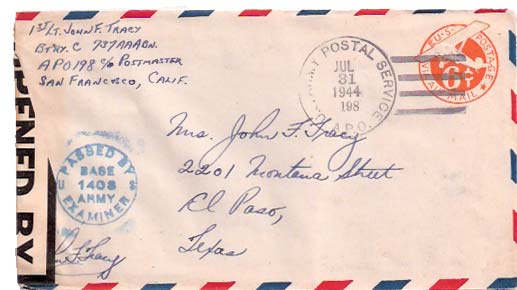 1ST LT. JOHN F. TRACY
BTRY. C 737 AAA BN.
APO 198 % POSTMASTER
SAN FRANCISCO, CALIF.
U.S. ARMY POSTAL SERVICE
JUL
31
1944
198
A.P.O.
U.S. POSTAGE
6¢
VIA AIR MAIL
OPENED BY
PASSED BY
BASE
U 1408 S
ARMY
EXAMINER
Mrs. John F. Tracy
2201 Montana Street
El Paso,
Texas
John F. Tracy